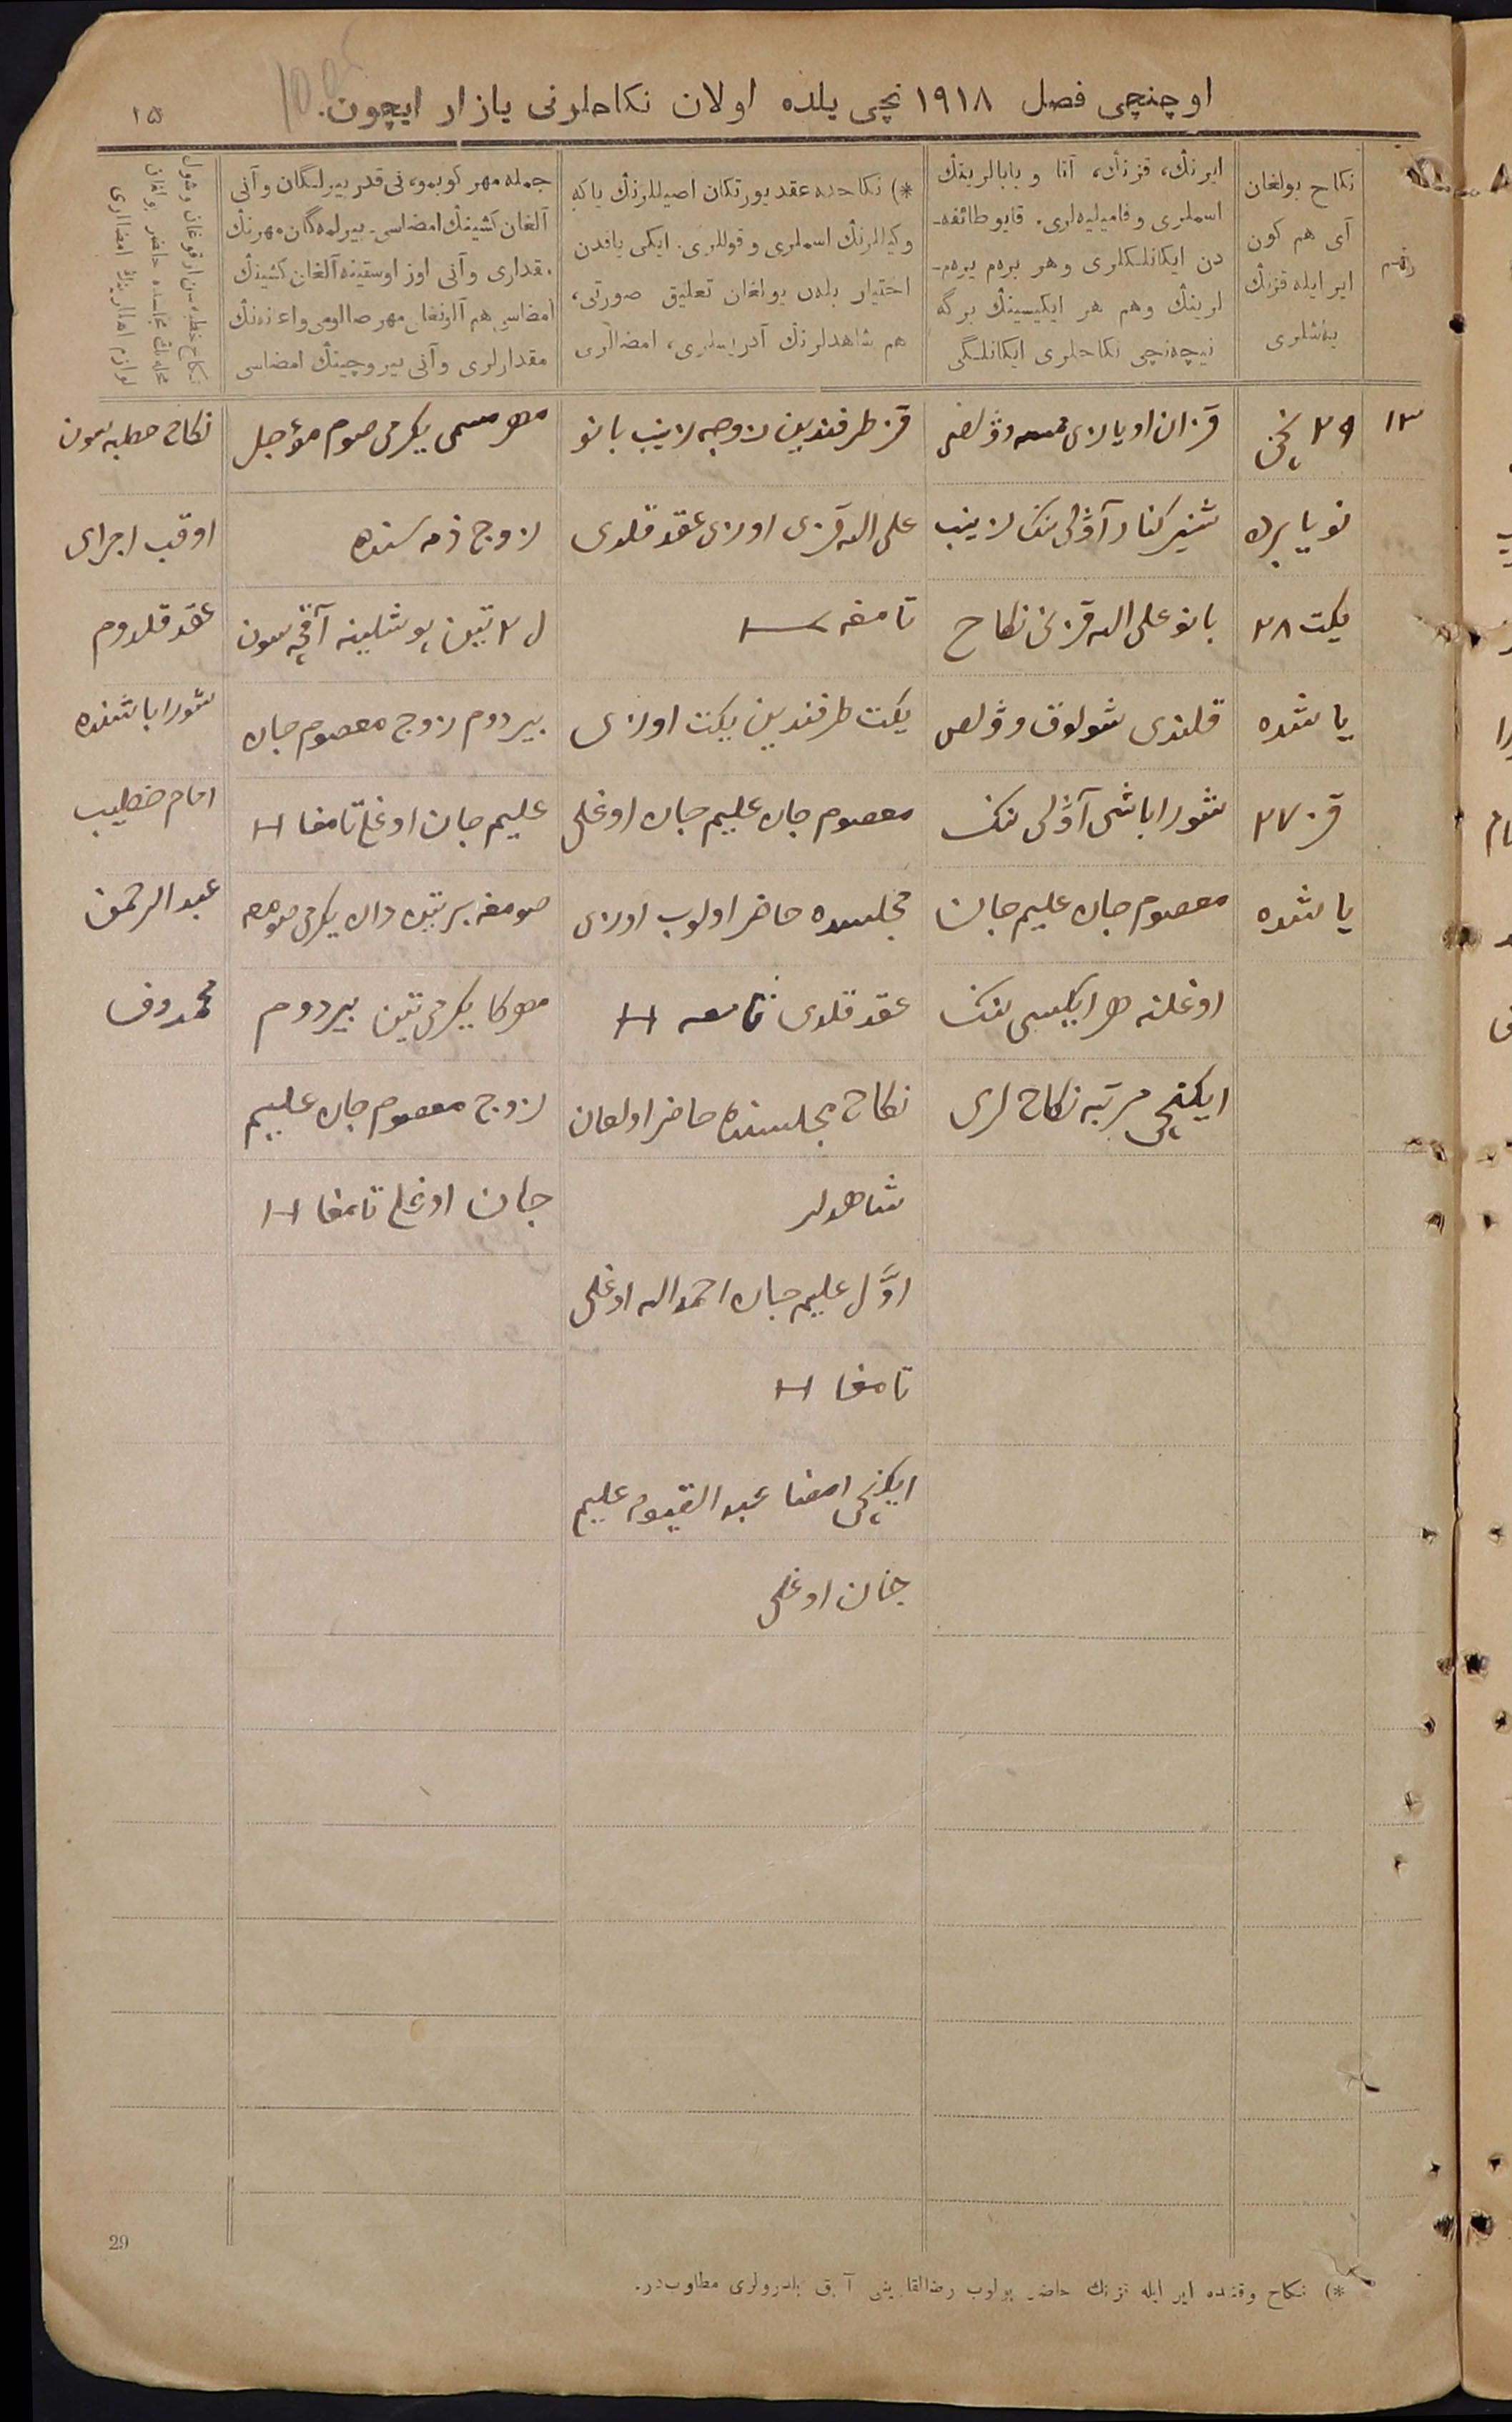 اوچنچی فصل ۱۹۱۸ نچی یلده اولان نکاحلرنی یازار ایچون.
۱۵
رقم
نکاح بولغان
آی هم کون
ایر ایله قزنڭ
یەشلری
ایرنڭ، قزنڭ، آتا و بابالرینڭ
اسملری و فامیلیه‌لری. قایو طائفه‌-
دن ایکانلکلری وهر برەم یرەم-
لرینڭ وهم هر ایکیسینڭ برگه
نیچه‌نچی نکاحلری ایکانلگی
*) نکاحده عقد یورتکان اصیللرنڭ یاکه
وکیللرنڭ اسملری و قوللری. ایکی یاقدن
اختیار بلەن بولغان تعلیق صورتی،
هم شاهدلرنڭ آدریسلری، امضالری
جمله مهر کوبمو، نی قدر بیرلگان و آنی
آلغان کشینڭ امضاسی. بیرلمەگان مهرنڭ
مقداری و آنی اوز اوستینه آلغان کشینڭ
امضاسی هم آلونغان مهر صالومی و اعانه‌نڭ
مقدارلری و آنی بیروچینڭ امضاسی
نکاح خطبه‌سن اوقوغان وشول
مجلسده حاضر بولغان
امضالری
۱۳
۲۹ نچی
نویابره
یکت ۲۸
یاشده
قز ۲۷
یاشده
قزان اویازی وولص
آولی ننک زینب
بانو علی الله قزنی نکاح
قلندی شولوق وولص
شورا باشی آولی ننک
معصوم جان علیم جان
اوغلنه هر ایکیسی ننک
ایکنچی مرتبه نکاح لری
قز طرفندین زوجه زینب بانو
علی الله قزی اوزی عقد قلدی
تامغه
یکت طرفندین یکت اوزی
معصوم جان علیم جان اوغلی
مجلسده حاضر اولوب اوزی
عقد قلدی تامغه H
نکاح مجلسنده حاضر اولغان
شاهدلر
اوّل علیم جان احمد الله اوغلی
تامغا H
ایکنچی امضا عبد القیوم علیم
جان اوغلی
مهر مسمی یکرمی صوم مؤجل
زوج ذمه سنده
۲ تیین پوشلینه آقچه سون
بیردوم زوج معصوم جان
علیم جان اوغلی تامغا H
صومغه بر تیندان یکرمی صوم
مهرکا یکرمی تین بیردوم
زوج معصوم جان علیم
جان اوغلی تامغا H
نکاح خطبه سون
اوقب اجرای
عقد قلدوم
شورا باشنده
امام خطیب
عبد الرحمن
محمدوف
29
*) نکاح وقتنده ایر ایله قزنڭ حاضر بولوب رضالقلارینی آچق بلدرولری مطلوب‌در.